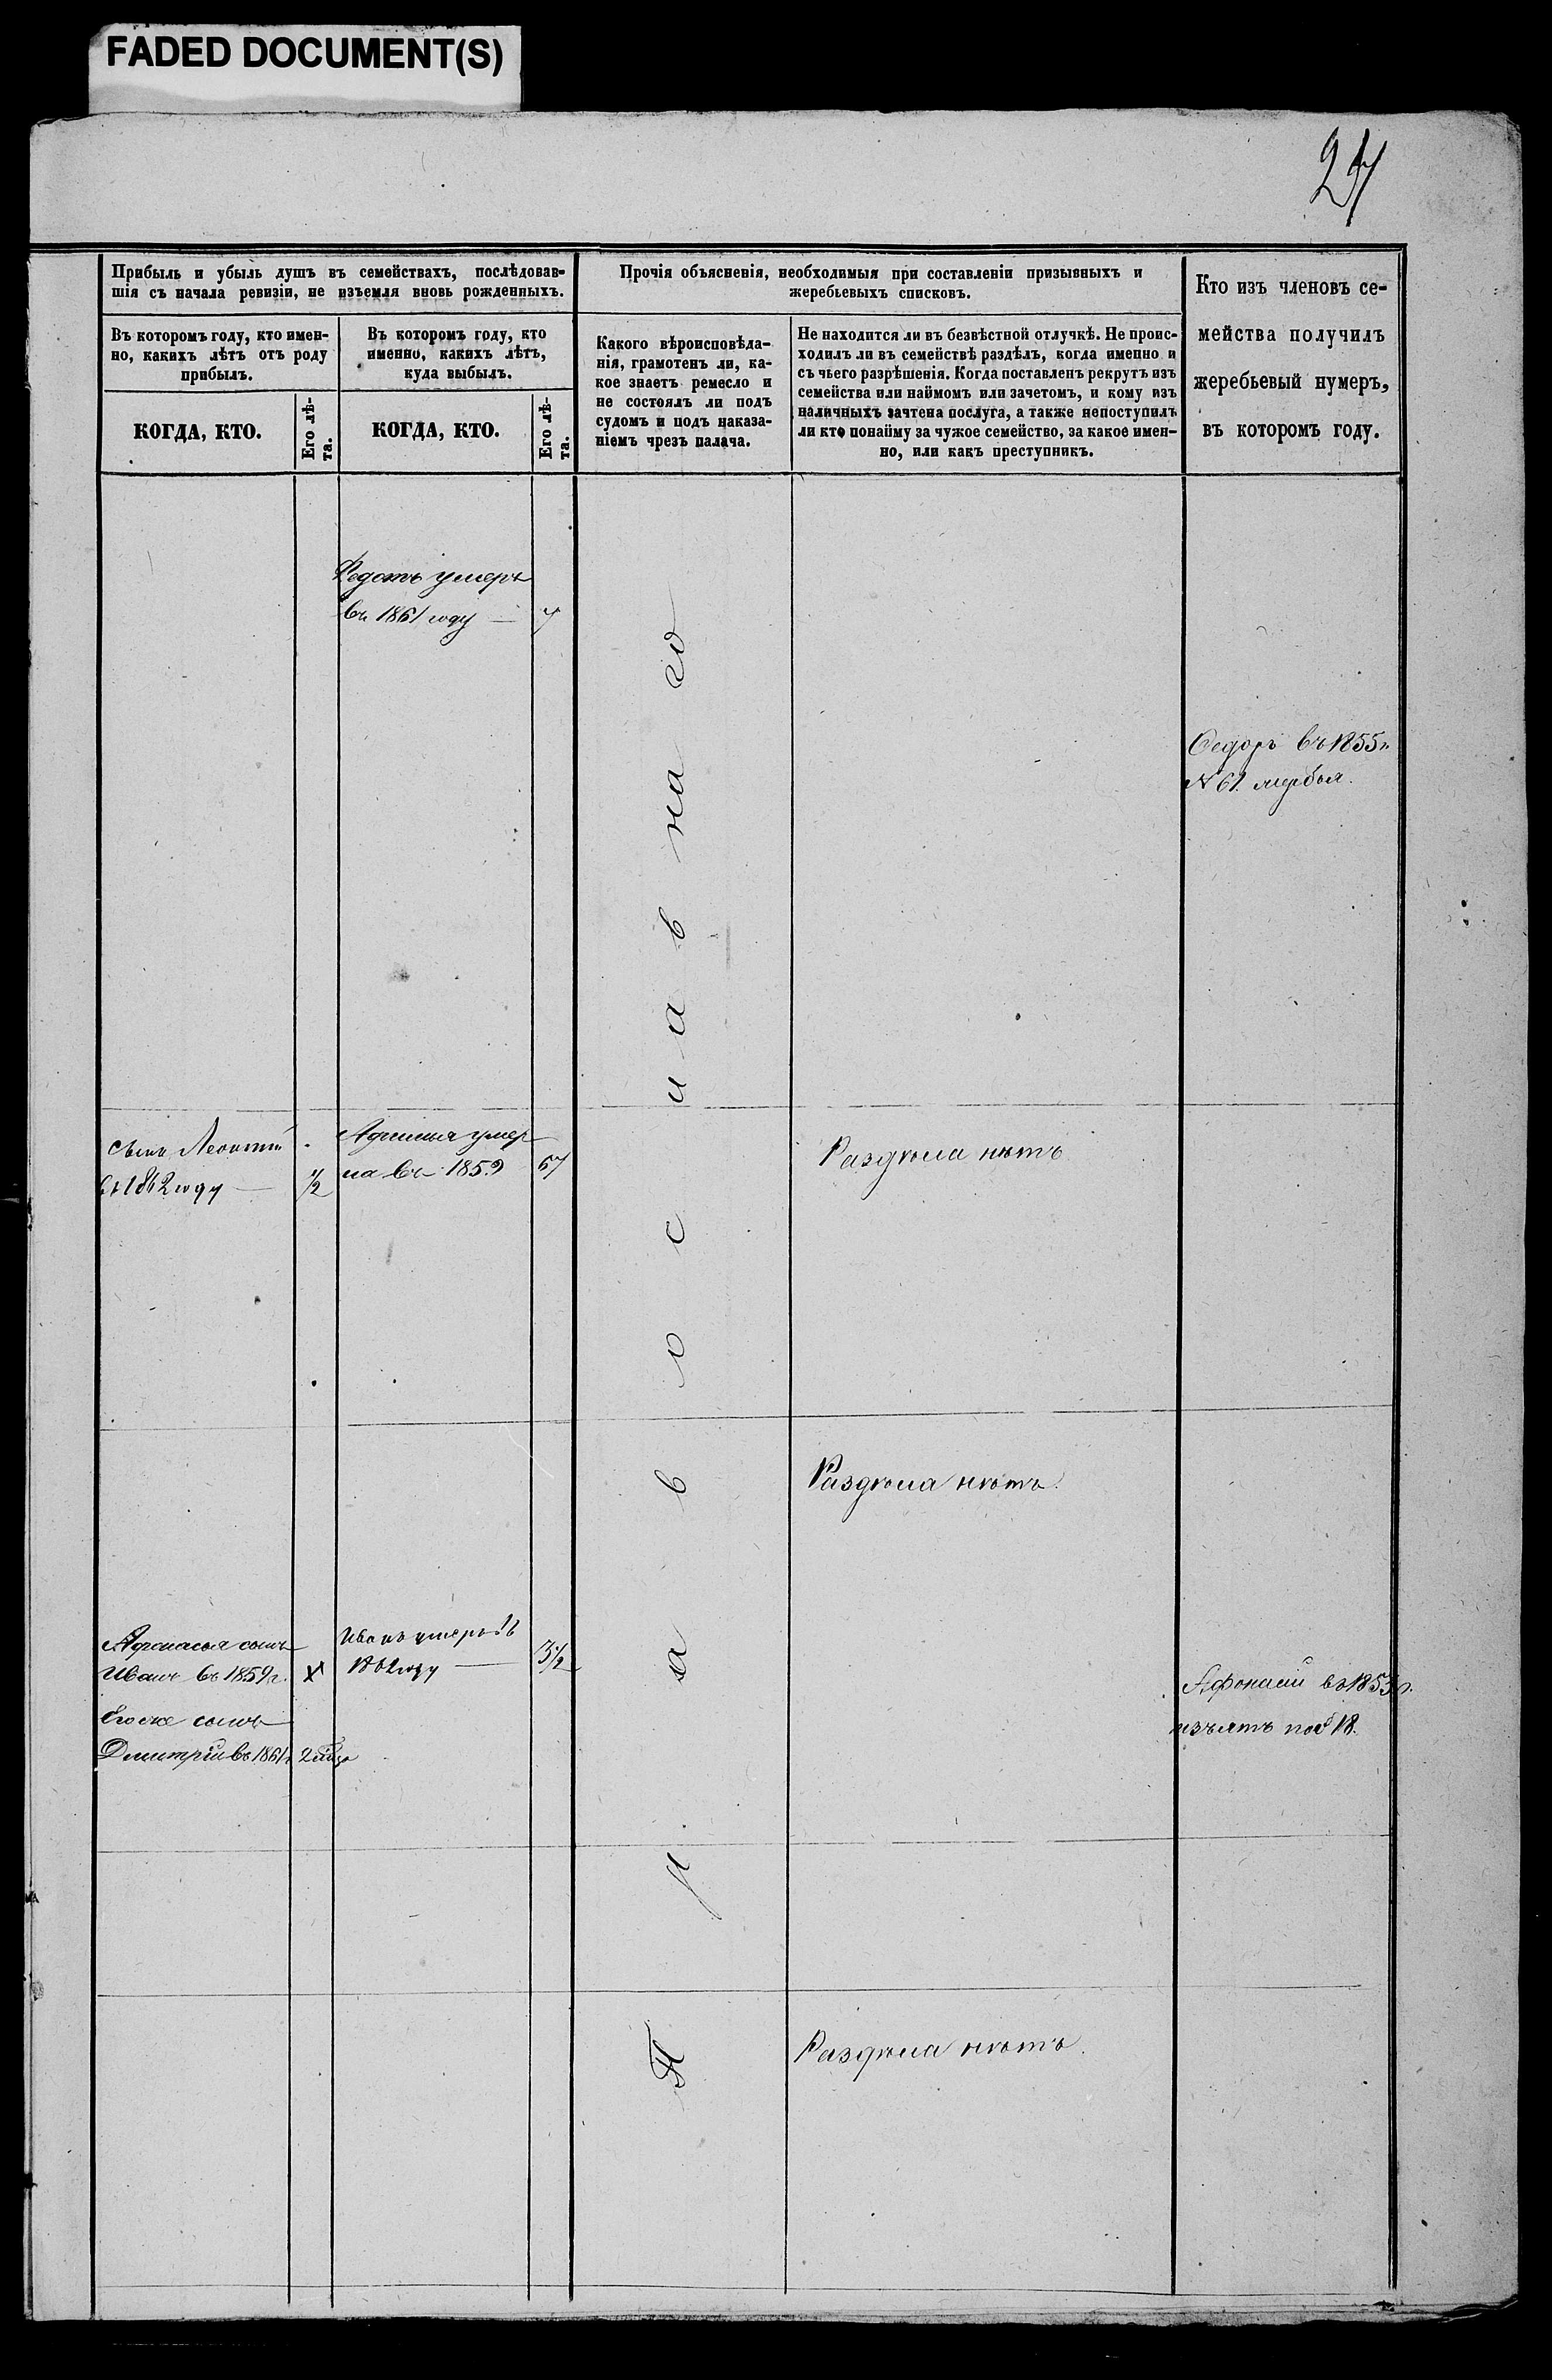 FADED DOCUMENT(S)
Прибыль и убыль душъ въ семействахъ, послѣдовав-
шія съ начала ревизіи, не изъемля вновь рожденныхъ.
Въ которомъ году, кто имен-
но, какихъ лѣтъ отъ роду
прибылъ.
КОГДА, КТО.
Его лѣ-
та.
Въ которомъ году, кто
именно, какихъ лѣтъ,
куда выбылъ.
КОГДА, КТО.
Его лѣ-
та.
Прочія объясненія, необходимыя при составленіи призывныхъ и
жеребьевыхъ списковъ.
Какого вѣроисповѣда-
нія, грамотенъ ли, ка-
кое знаетъ ремесло и
не состоялъ ли подъ
судомъ и подъ наказа-
ніемъ чрезъ палача.
Не находится ли въ безвѣстной отлучкѣ. Не проис-
ходилъ ли въ семействѣ раздѣлъ, когда именно и
съ чьего разрѣшенія. Когда поставленъ рекрутъ изъ
семейства или наймомъ или зачетомъ, и кому изъ
наличныхъ зачтена послуга, а также непоступилъ
ли кто понайму за чужое семейство, за какое имен-
но, или какъ преступникъ.
Кто изъ членовъ се-
мейства получилъ
жеребьевый нумеръ,
въ которомъ году.
Федотъ умеръ
въ 1861 году — 7
Православнаго
Федоръ въ 1855 г
№ 61
сынъ Леонтій
въ 1862 году — 1/2
умер
ла въ 1859 67
Раздѣла нѣтъ
Раздѣла нѣтъ.
Афанасья сынъ
Иванъ въ 1859 г.
Его же сынъ
Дмитрій въ 1861 г
Иванъ умеръ въ
1862 году — 3 1/2
Афонасій въ 1853 г.
изъятъ 18.
Раздѣла нѣтъ.